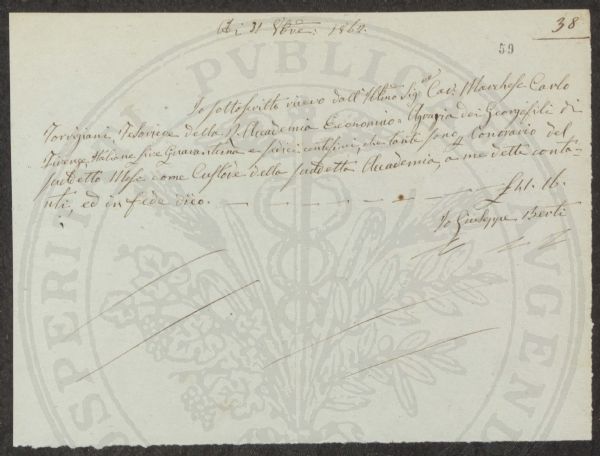 38
A dì 31 8bre: 1862.
59
Io sottoscritto ricevo dall' Illmo Sigre Cav: Marchese Carlo
Torrigiani Tesoriere della R. Accademia Economico-Agraria dei Georgofili di
Firenze, Italiane Lire Quarantuna e sedici centesimi, che tanti sono Onorario del
suddetto Mese come Custode della suddetta Accademia, a me detti conta-
nti, ed in fede dico. £41. 16.
Io Giuseppe Berti
PROSPERITATI PUBLICAE AUGENDAE